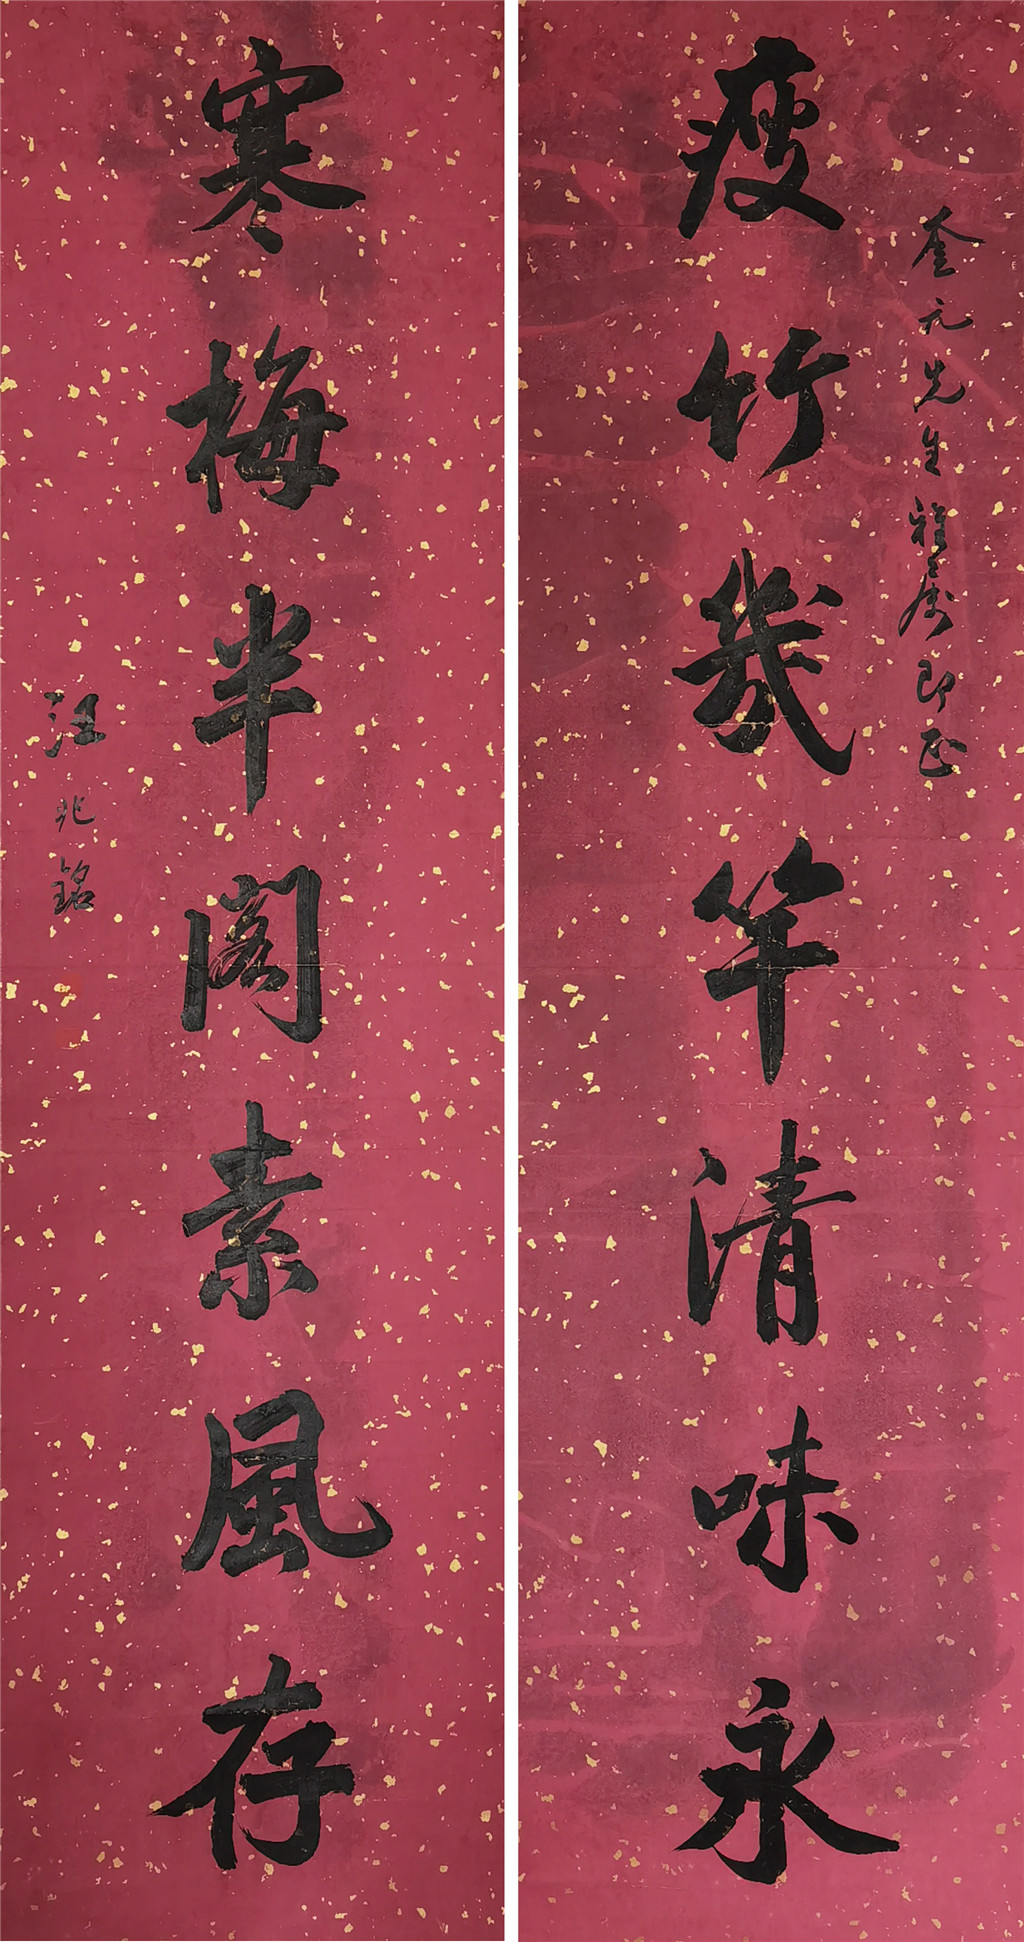 奎元先生雅屬即正
瘦竹幾竿清味永
寒梅半閣素風存
汪兆銘